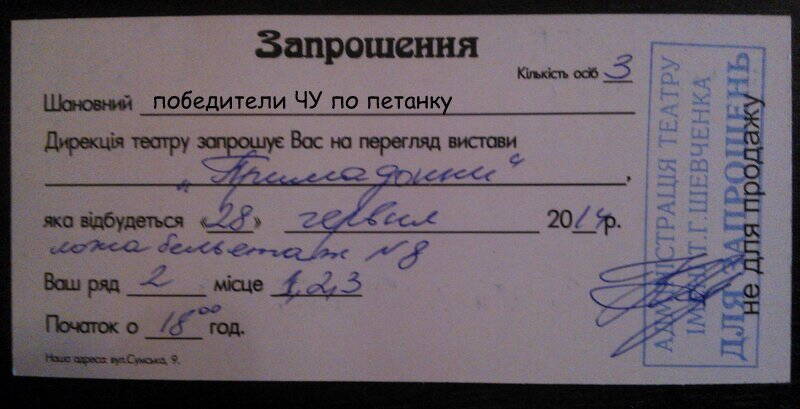 Запрошення
Кількість осіб 3
Шановний победители ЧУ по петанку
Дирекція театру запрошує Вас на перегляд вистави
„Примадонни“,
яка відбудеться «28» червня 2014р.
ложа бельетаж №8
Ваш ряд 2 місце 1,2,3
Початок о 18⁰⁰ год.
Наша адреса: вул.Сумська, 9.
АДМІНІСТРАЦІЯ ТЕАТРУ
ІМЕНІ Т.Г.ШЕВЧЕНКА
ДЛЯ ЗАПРОШЕНЬ
не для продажу